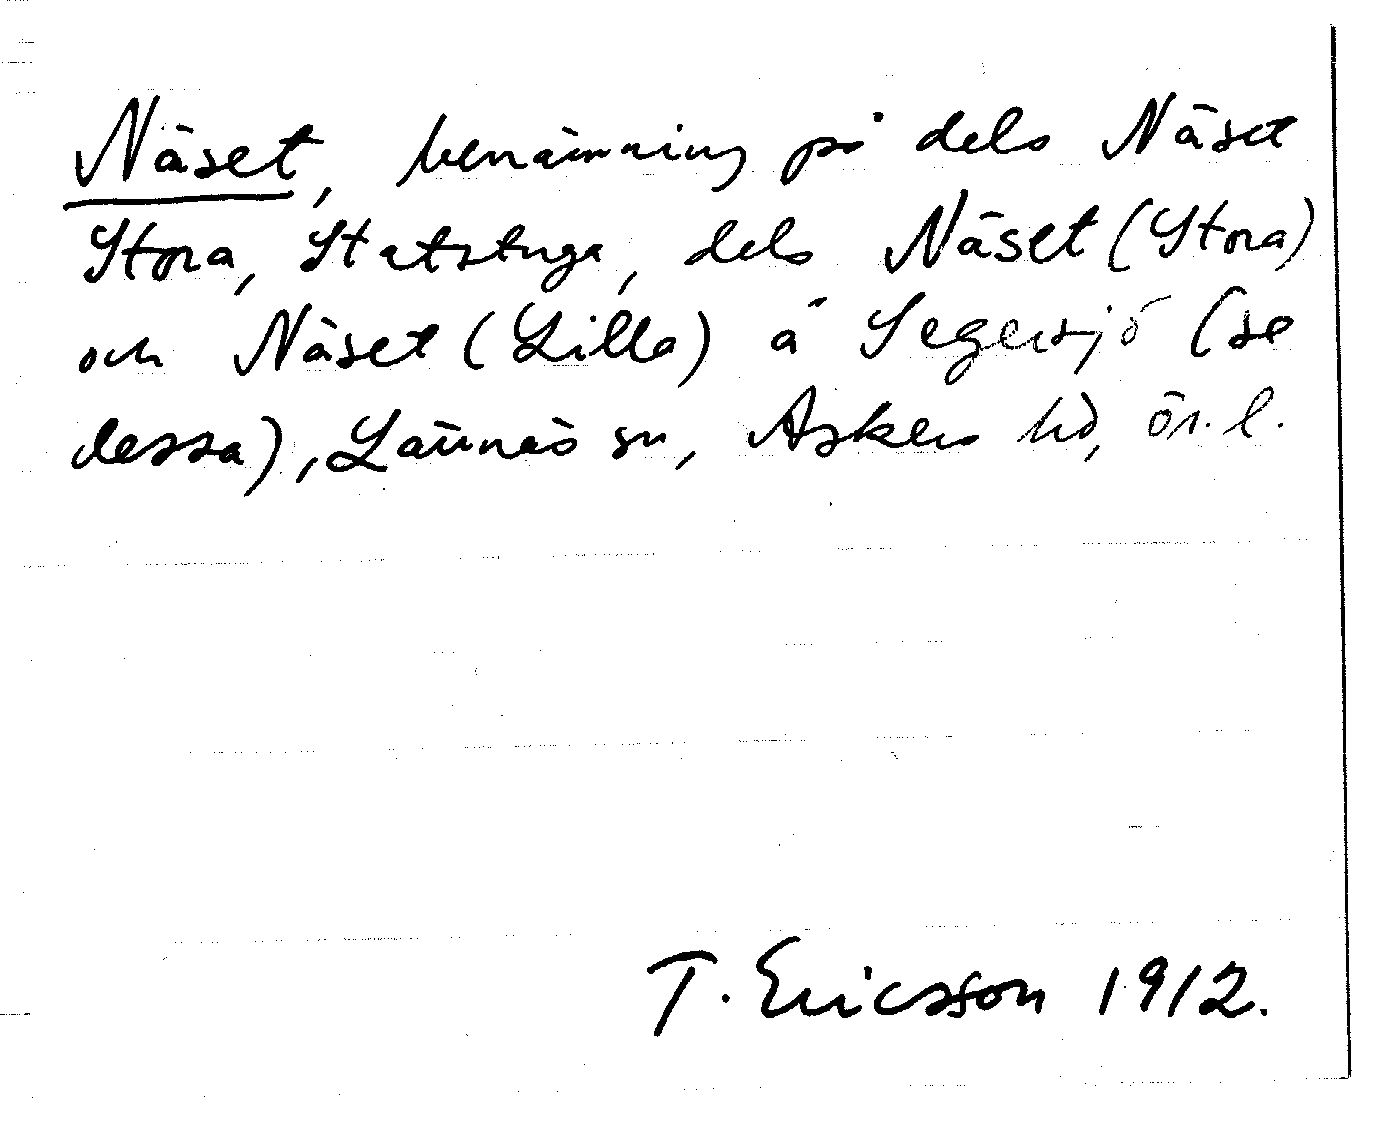 Näset, benämning på dels Näset
Stora, Statstuga, dels Näset (Stora)
och Näset (Lilla) å Segersjö (se
dessa), Lännäs sn, Askers hd, ör. l.
T. Ericsson 1912.